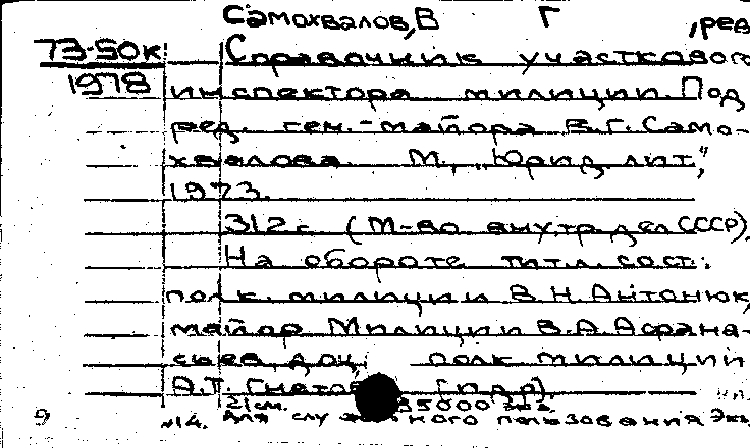 Самохвалов, В Г , рев
73-50к Справочник участкового
1978 инспектора милиции. Под
ред. ген.-майора В.Г. Само-
хвалова. М., „Юрид. лит.",
1973.
312 с. (М-во внутр. дел СССР).
На обороте тит. л. сост.:
полк. милиции В.Н. Антонюк,
майор Милиции В.А. Афана-
сьев, доц. полк милиции
А.Т. [и др].
21 см. 35000 экз.
9 №14. Для служебного пользования Экз